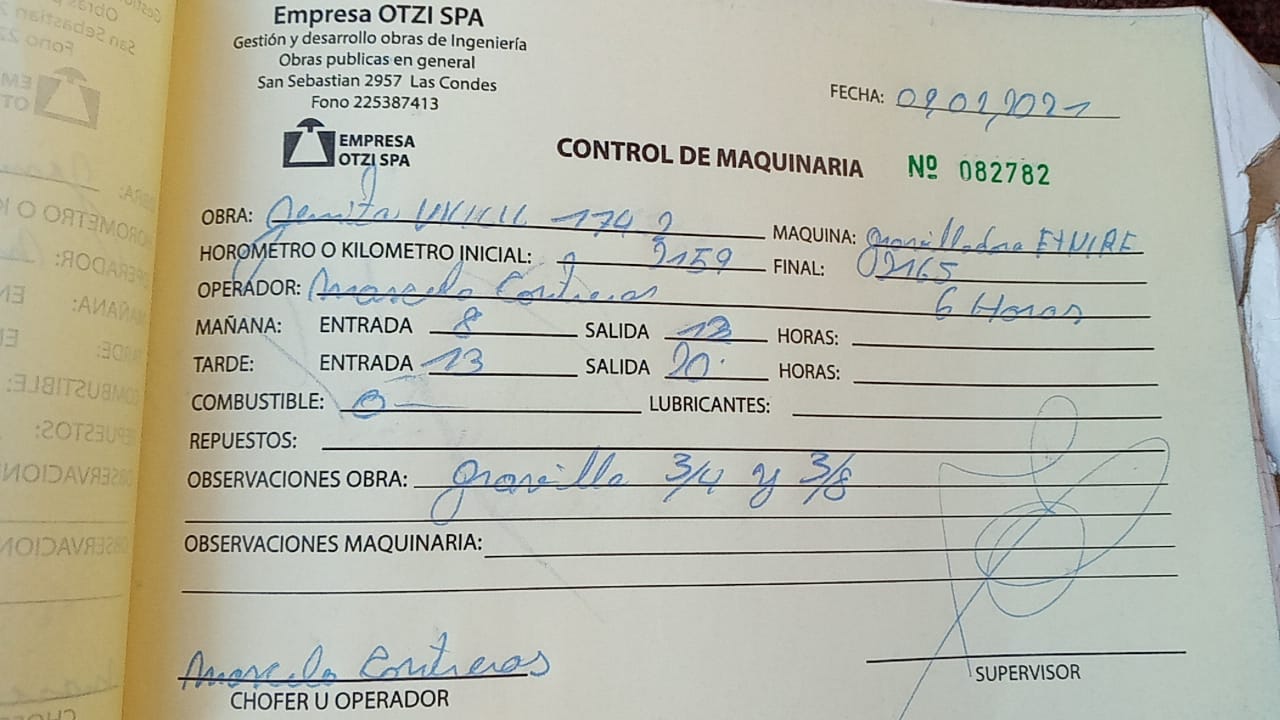 Empresa OTZI SPA
Gestión y desarrollo obras de Ingeniería
Obras publicas en general
San Sebastian 2957 Las Condes
Fono 225387413
EMPRESA
OTZI SPA
FECHA: 09,02,2021
CONTROL DE MAQUINARIA Nº 082782
OBRA: 174 MAQUINA: gravilladora ETNIRE
HOROMETRO O KILOMETRO INICIAL: 9159 FINAL: 09165
OPERADOR: Marcelo Contreras 6 Horas
MAÑANA: ENTRADA 8 SALIDA HORAS:
TARDE: ENTRADA 13 SALIDA 20 HORAS:
COMBUSTIBLE: 0 LUBRICANTES:
REPUESTOS:
OBSERVACIONES OBRA: gravilla 3/4 y 3/8
OBSERVACIONES MAQUINARIA:
Marcelo Contreras
CHOFER U OPERADOR
SUPERVISOR